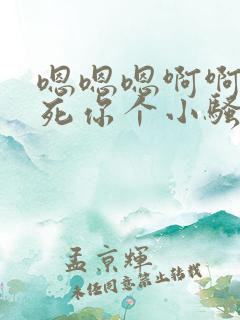 嗯嗯嗯啊啊
死你个小骚
孟京輝
未经同意禁止转载